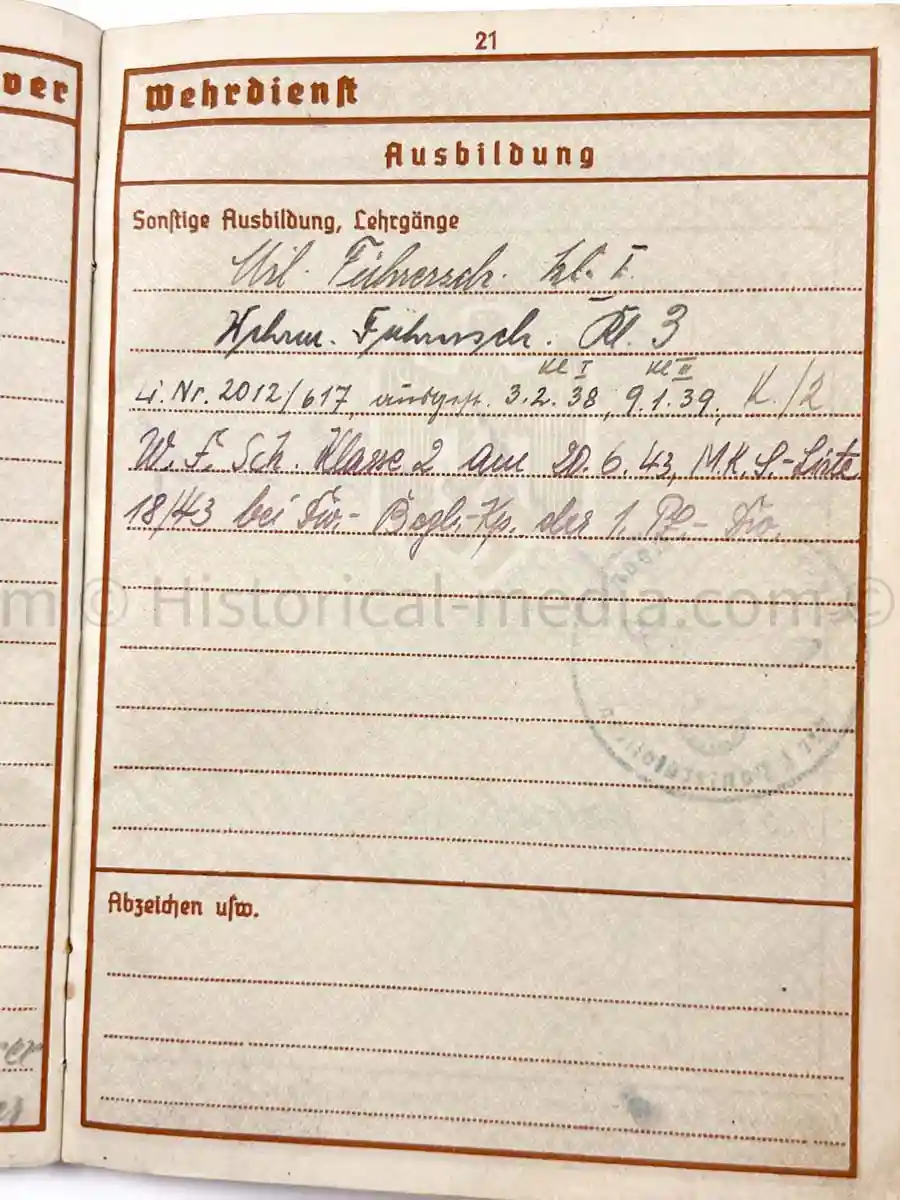 21
ver
Wehrdienst
Ausbildung
Sonstige Ausbildung, Lehrgänge
Mil. Führersch. kl. I.
Wehrm. Führersch. Kl. 3
Kl I Kl III
Li. Nr. 2012/617, ausgest. 3.2.38, 9.1.39, K./2
W. F. Sch. Klasse 2 am 20.6.43, M.K.S-Liste
18/43 bei Div.- Begl.-Kp. der 1. Pz.- Div.
m © Historical-media.com ©
Abzeichen usw.